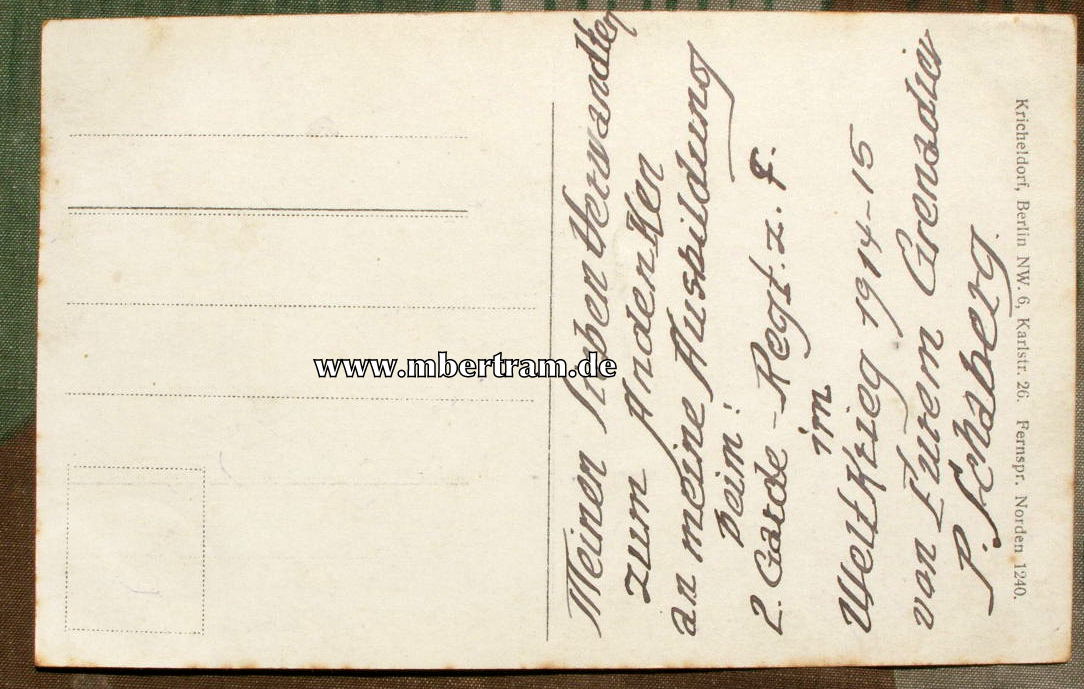 Meinen lieben Verwandten
zum Andenken
an meine Ausbildung
beim!
2. Garde-Regt. z. F.
im
Weltkrieg 1914-15
von Eurem Grenadier
P. Schaberg
Kricheldorf, Berlin NW. 6, Karlstr. 26. Fernspr. Norden 1240.
www.mbertram.de